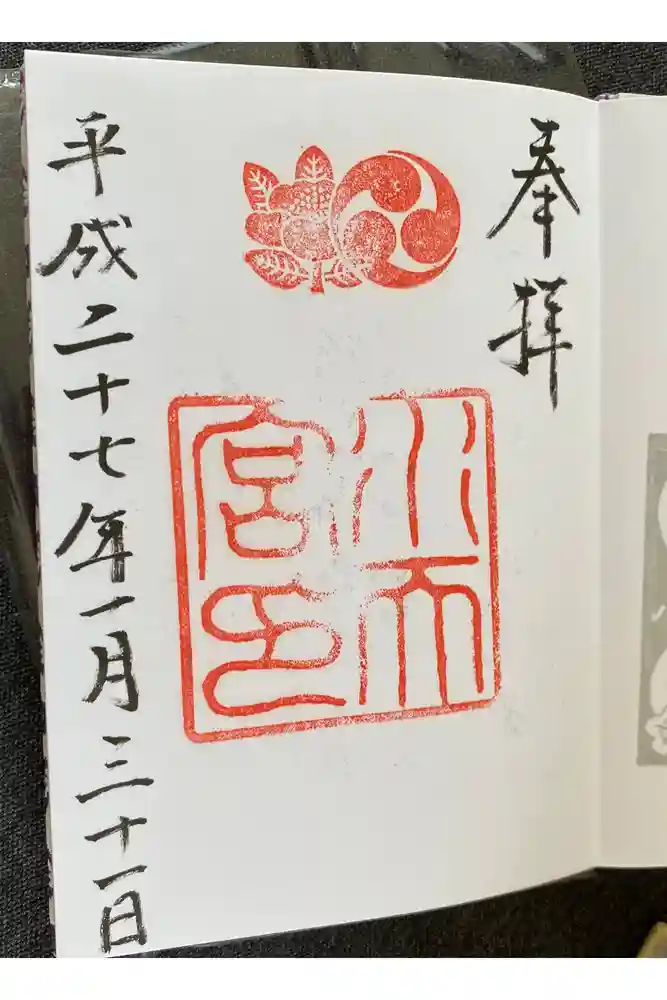 奉拝
水天
宮印
平成二十七年一月三十一日